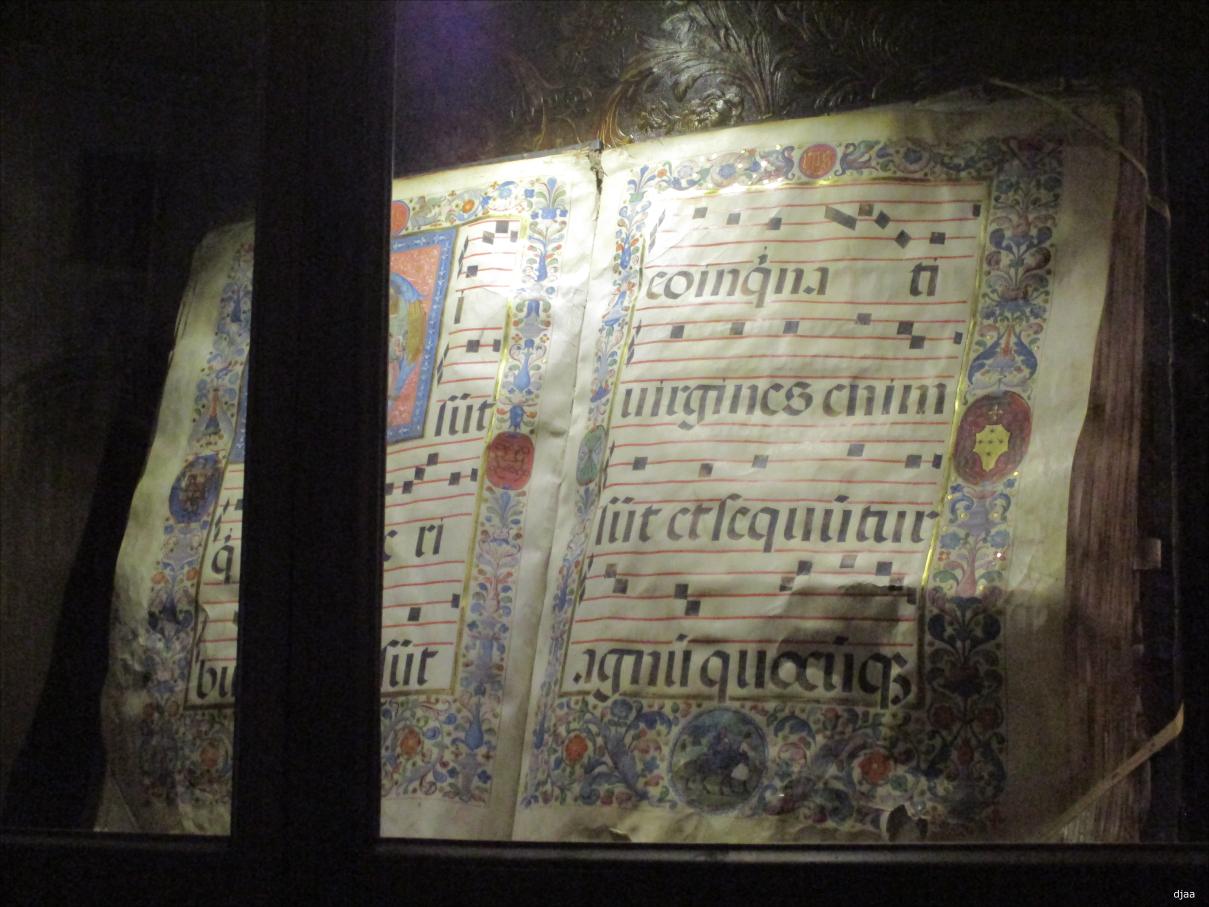 l
sūt
q̇
c ri
bu
sūt
eoinq̇na ti
uirgines enim
sūt et sequūtur
agnū quocūqꝫ
djaa